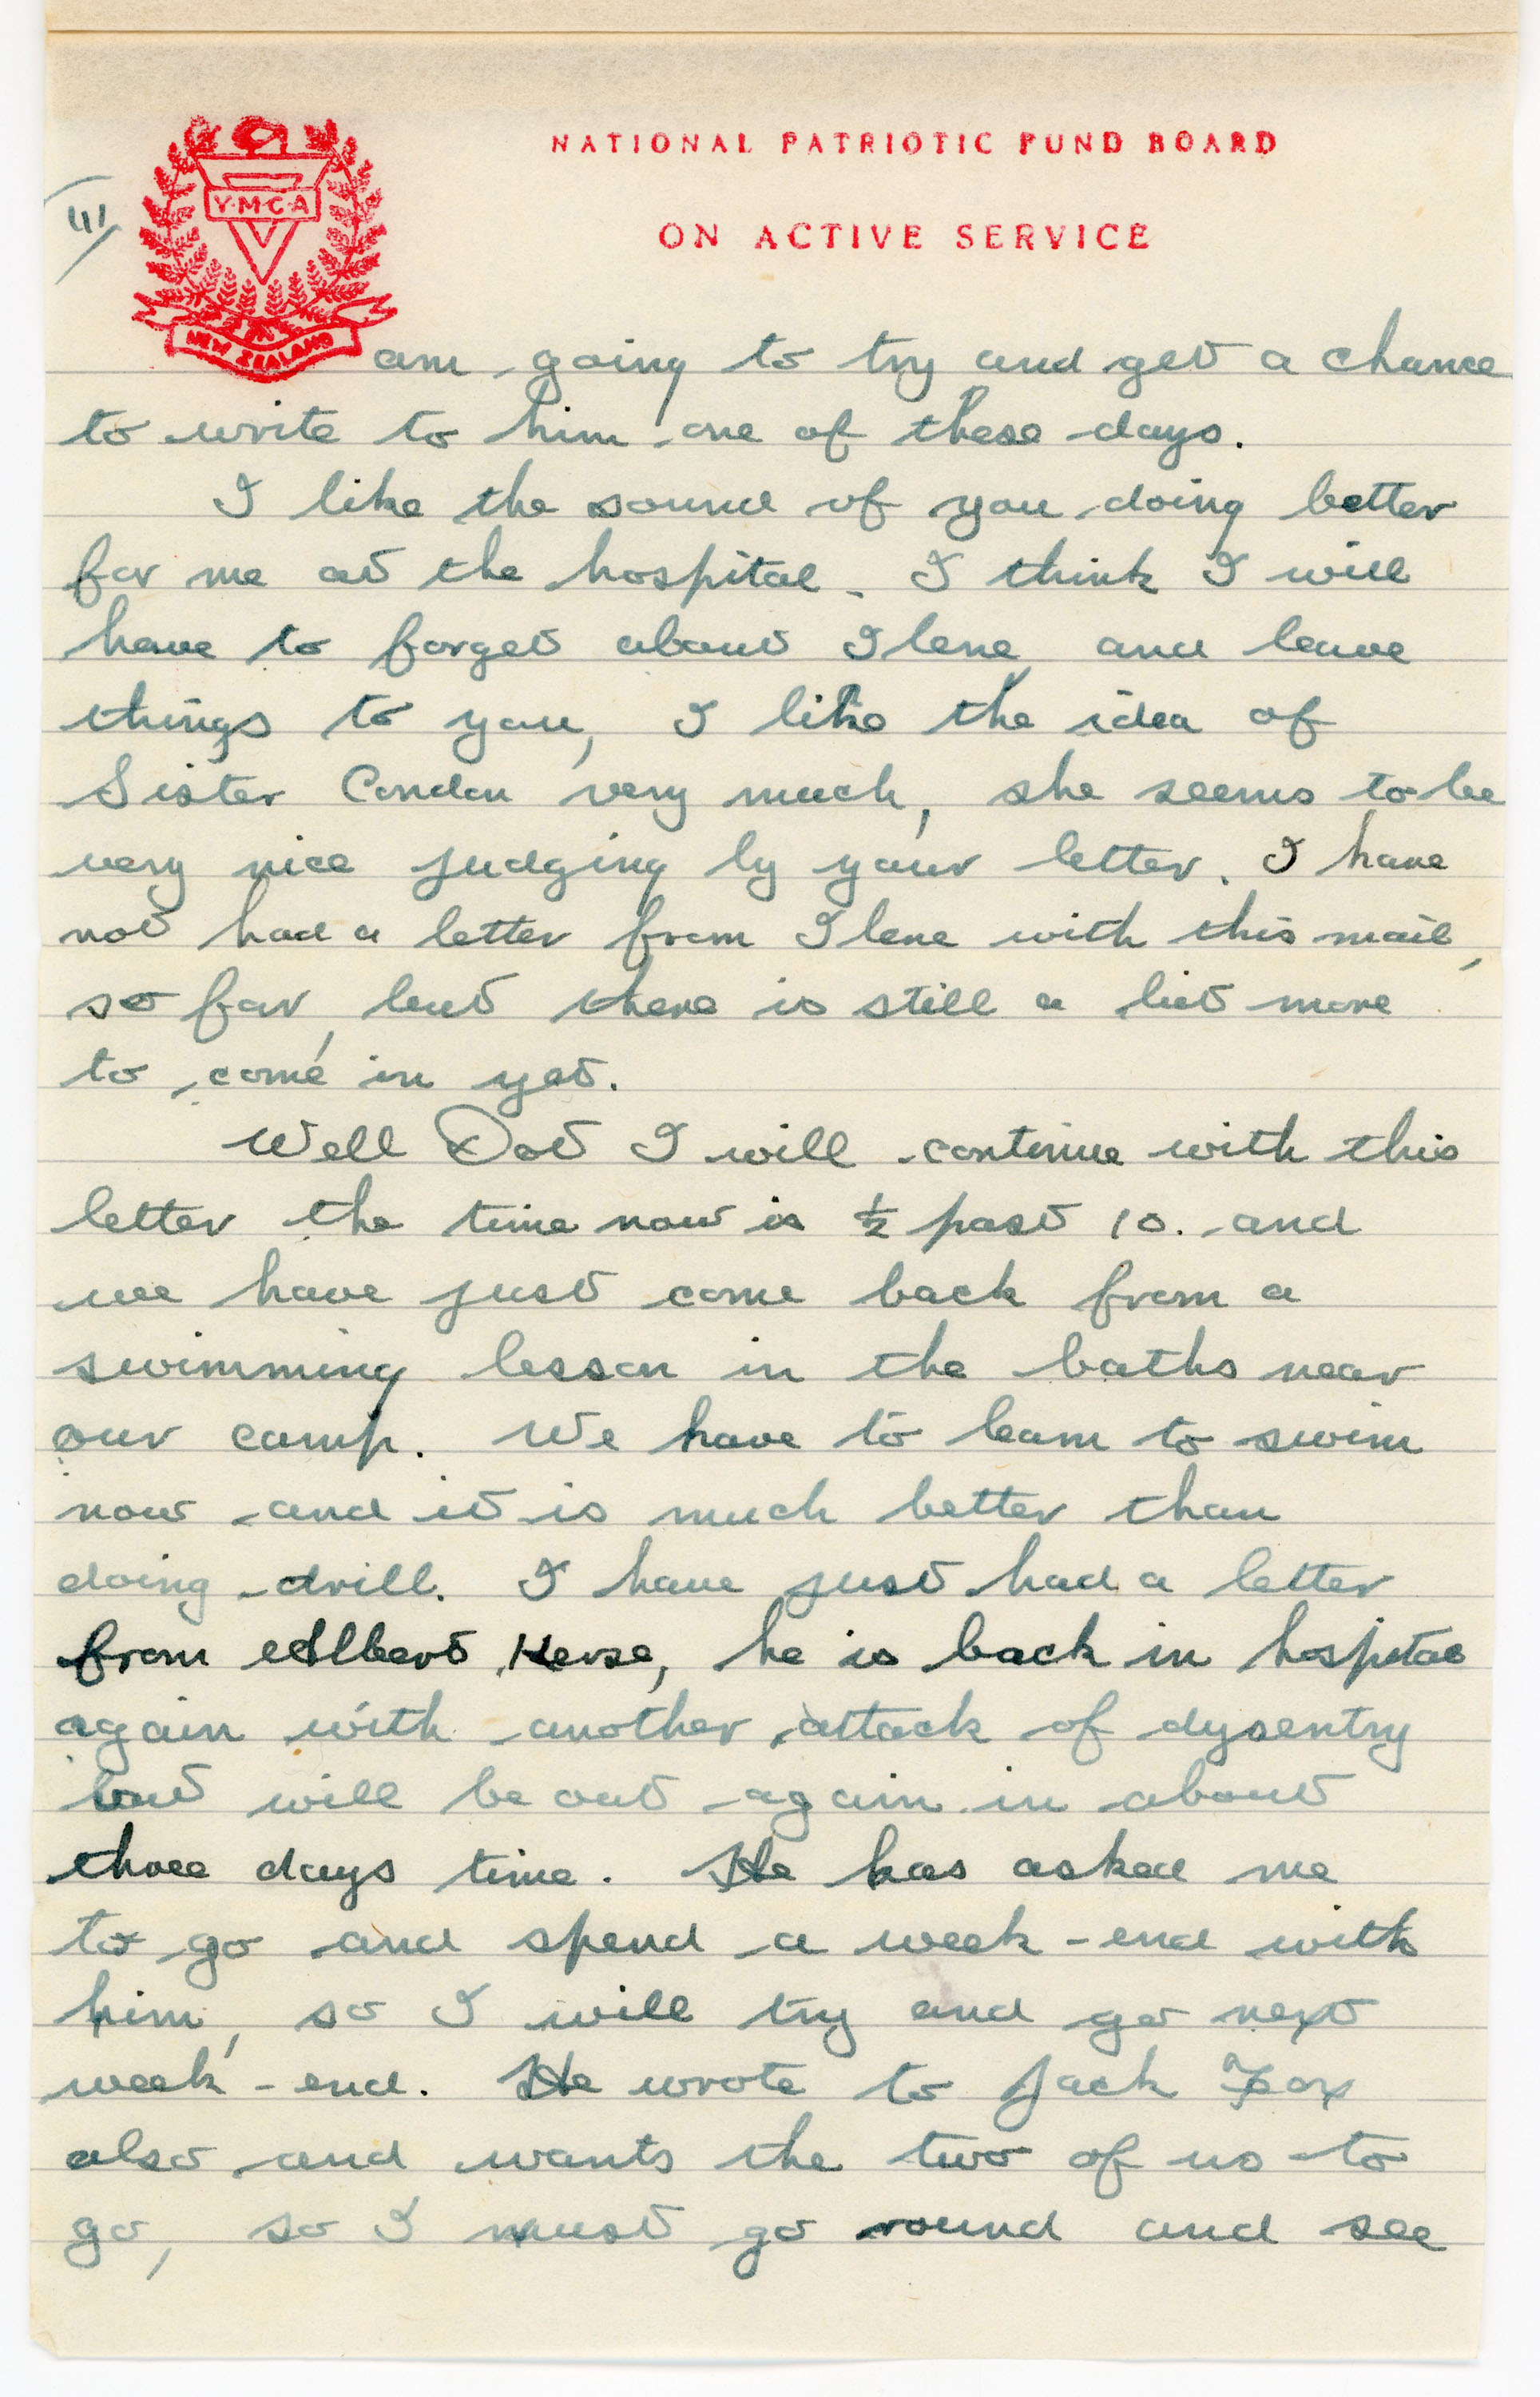 NATIONAL PATRIOTIC FUND BOARD
ON ACTIVE SERVICE
Y·M·C·A
NEW ZEALAND
111/
am going to try and get a chance
to write to him one of these days.
I like the sound of you doing better
for me at the hospital. I think I will
have to forget about Ilene and leave
things to you, I like the idea of
Sister Condon very much, she seems to be
very nice judging by your letter. I have
not had a letter from Ilene with this mail,
so far, but there is still a bit more
to come in yet.
Well Dot I will continue with this
letter the time now is ½ past 10. and
we have just come back from a
swimming lesson in the baths near
our camp. We have to learn to swim
now and it is much better than
doing drill. I have just had a letter
from Albert Herse, he is back in hospital
again with another attack of dysentry
but will be out again in about
three days time. He has asked me
to go and spend a week-end with
him, so I will try and go next
week-end. He wrote to Jack Fox
also and wants the two of us to
go, so I must go round and see